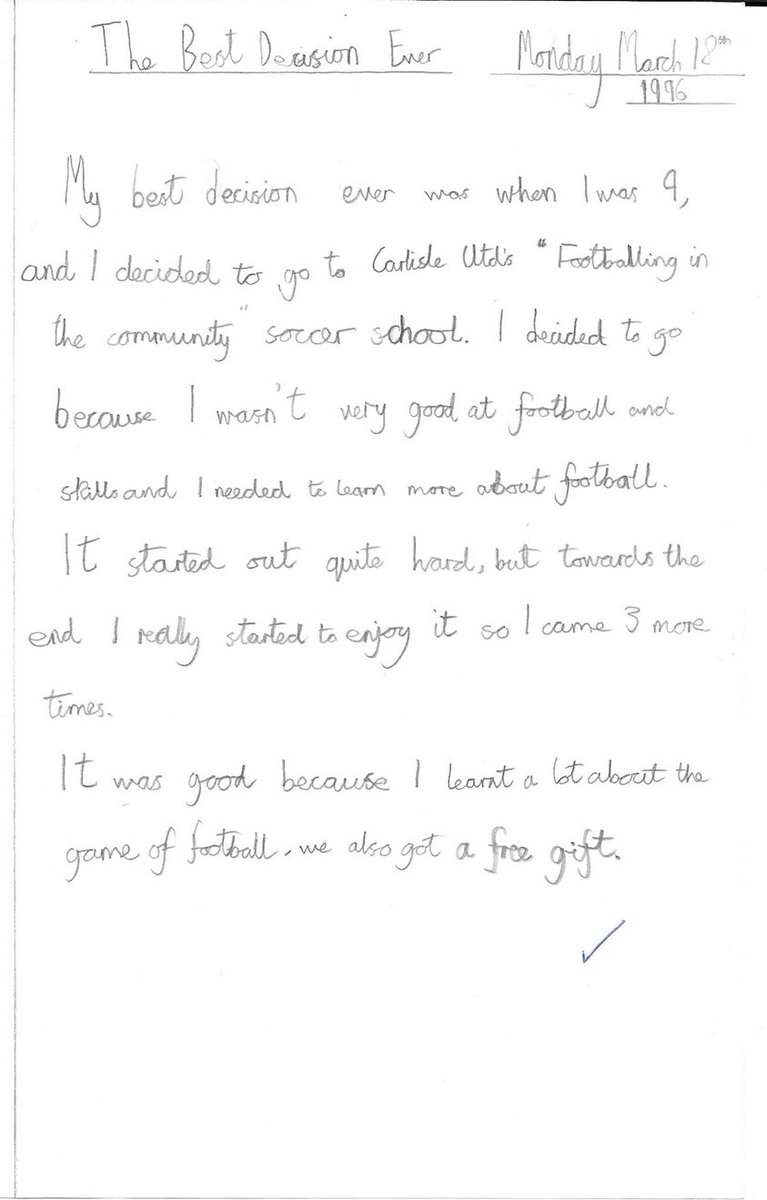 The Best Decision Ever Monday March 18th
1996
My best decision ever was when I was 9,
and I decided to go to Carlisle Utd's "Footballing in
the community" soccer school. I decided to go
because I wasn't very good at football and
skills and I needed to learn more about football.
It started out quite hard, but towards the
end I really started to enjoy it so I came 3 more
times.
It was good because I learnt a lot about the
game of football. we also got a free gift.